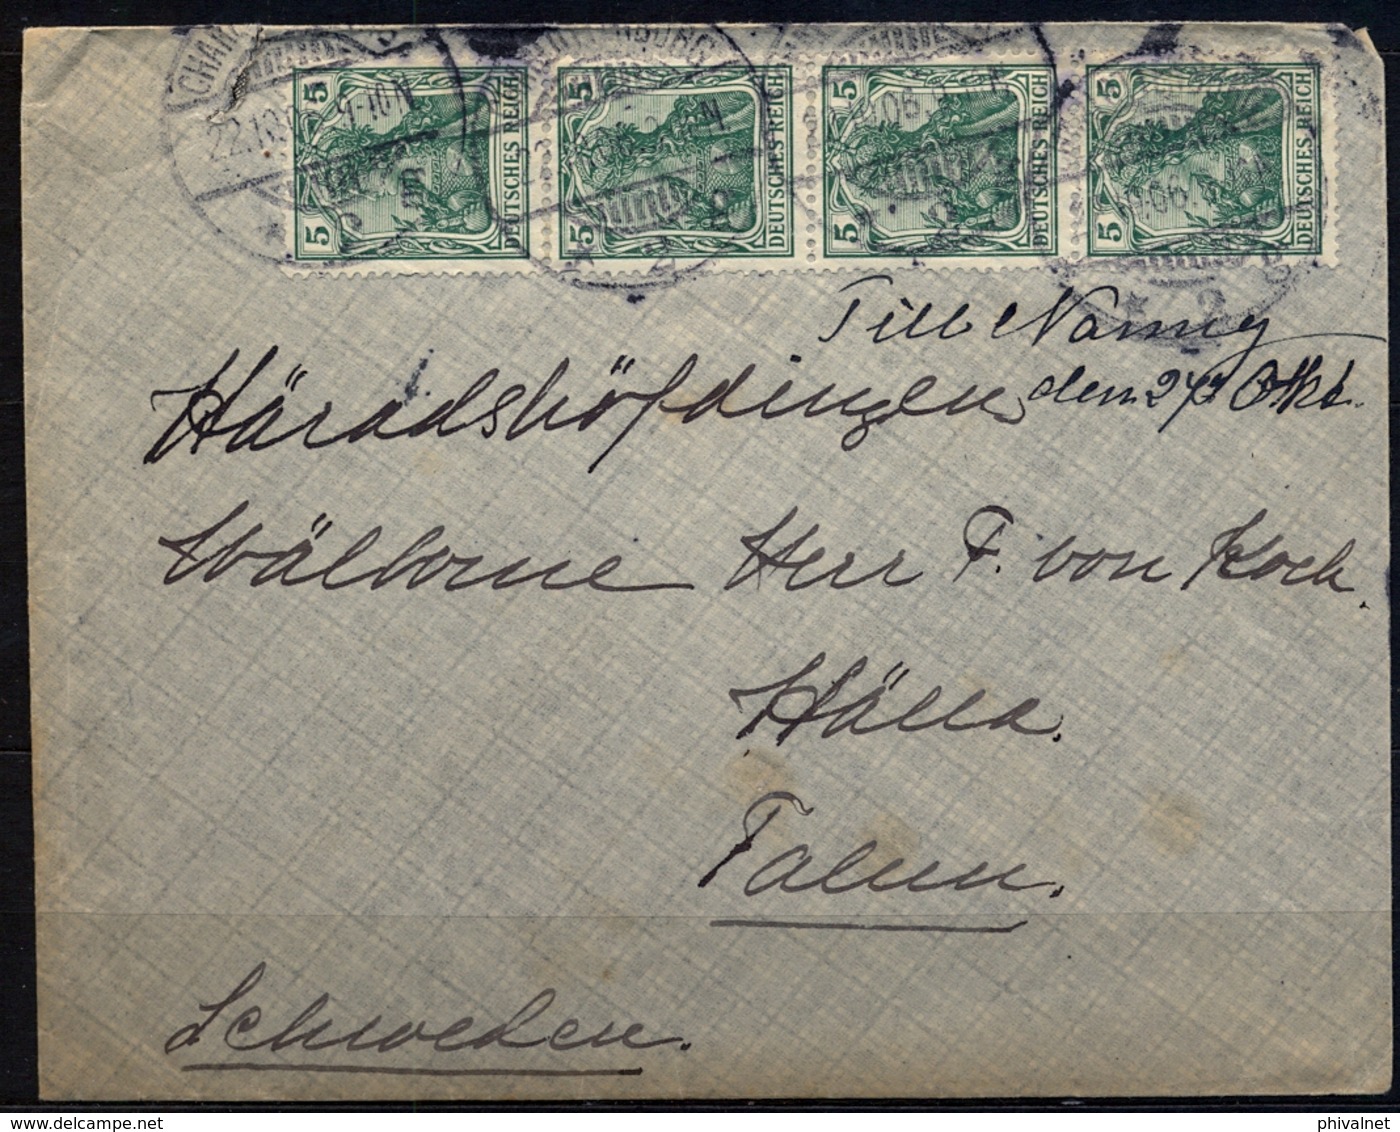 5 DEUTSCHES REICH 5
5 DEUTSCHES REICH 5
5 DEUTSCHES REICH 5
5 DEUTSCHES REICH 5
Till Nanny
den 24 Okt.
Häradshöfdingen
Wälborne Herr F. von Koch.
Hälla.
Falun.
Schweden.
phivalnet